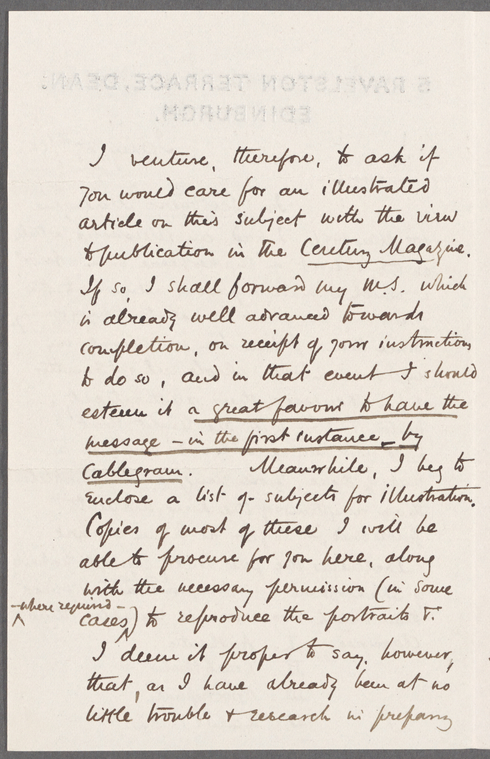 5 RAVELSTON TERRACE, DEAN,
EDINBURGH.
I venture, therefore, to ask if
you would care for an illustrated
article on this subject with the view
to publication in the Century Magazine.
If so, I shall forward my M.S. which
is already well advanced towards
completion, on receipt of your instructions
to do so, and in that event I should
esteem it a great favour to have the
message – in the first instance – by
Cablegram. Meanwhile, I beg to
enclose a list of subjects for illustration.
Copies of most of these I will be
able to procure for you here, along
with the necessary permission (in some
– where required –
cases) to reproduce the portraits &.
I deem it proper to say, however,
that, as I have already been at no
little trouble & research in preparing